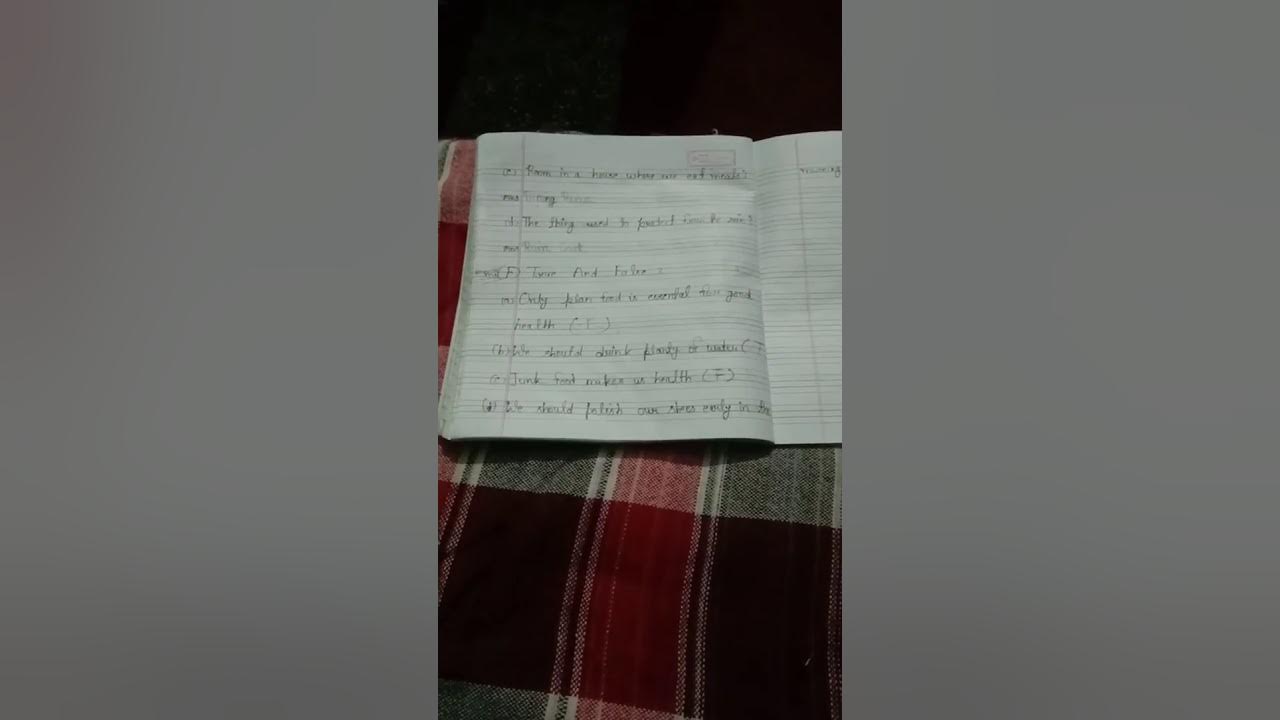 (c) Room in a house where we eat meals?
ans Dining Room
(d) The thing used to protect from the rain?
ans Rain Coat
(F) True And False?
(a) Only plan food is essential for good
health (F)
(b) We should drink planty of water (T
(c) Junk food makes us health (F)
(d) We should polish our shoes early in the
morning